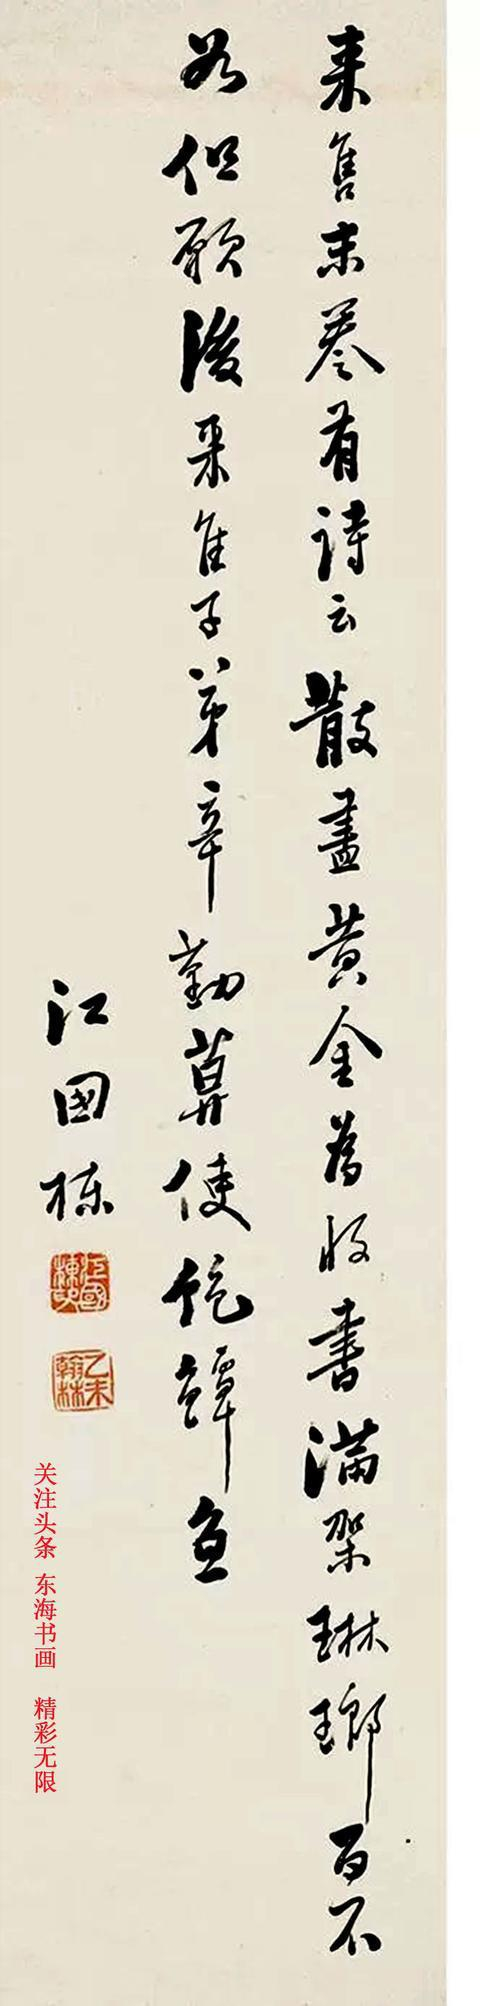 来售末卷有詩云散盡黄金為收書滿架琳瑯百不
但願後来佳子弟辛勤莫使飽蟫魚
江國棟
江國棟印
乙未翰林
关注头条 东海书画 精彩无限